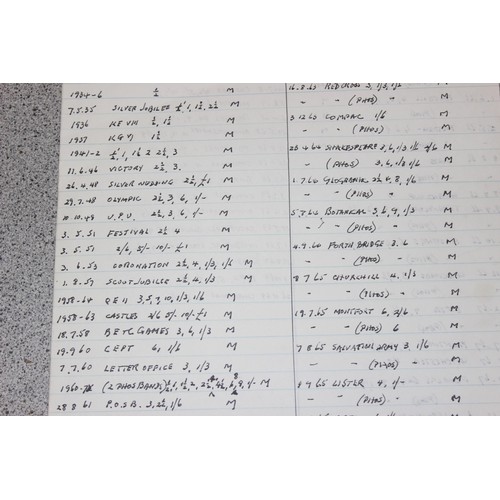 1934-6 ½ M
7.5.35 SILVER JUBILEE ½, 1, 1½, 2½ M
1936 KEVIII ½, 1½ M
1937 KGVI 1½ M
1941-2 ½, 1, 1½ 2 2½, 3 M
11.6.46 VICTORY 2½, 3. M
26.4.48 SILVER WEDDING 2½, £1 M
29.7.48 OLYMPIC 2½, 3, 6, 1/- M
10.10.49 U.P.U. 2½, 3, 6, 1/- M
3.5.51 FESTIVAL 2½ 4 M
3.5.51 2/6, 5/- 10/- £1 M
3.6.53 CORONATION 2½, 4, 1/3, 1/6 M
1.8.57 SCOUT JUBILEE 2½, 4, 1/3 M
1958-64 QE II 3, 5, 9, 10, 1/3, 1/6 M
1958-63 CASTLES 2/6 5/- 10/- £1 M
18.7.58 BE+C GAMES 3, 6, 1/3 M
19.9.60 CEPT 6, 1/6 M
7.7.60 LETTER OFFICE 3, 1/3 M
1960- (2 PHOS BANDS) ½, 1, 1½, 2, 2½, 6, 9, 1/- M
28.8.61 P.O.S.B. 3, 2½, 1/6 M
16.8.63 RED CROSS 3, 1/3, 1/6 M
- - (PHOS) - M
3.12.63 COMPAC 1/6 M
- - (PHOS) M
23.4.64 SHAKESPEARE 3, 6, 1/3 1/6 2/6 M
- (PHOS) 3, 6, 1/3 1/6 M
1.7.64 GEOGRAPHIC 2½, 4, 8, 1/6 M
- - (PHOS) - M
5.8.64 BOTANICAL 3, 6, 9, 1/3 M
- - (PHOS) - M
4.9.64 FORTH BRIDGE 3. 6 M
- - (PHOS) - M
8.7.65 CHURCHILL 4, 1/3 M
- - (PHOS) - M
19.7.65 MONTFORT 6, 2/6 M
- - (PHOS) 6 M
9.8.65 SALVATION ARMY 3, 1/6 M
- - (PHOS) - M
1.9.65 LISTER 4, 1/- M
- - (PHOS) - M